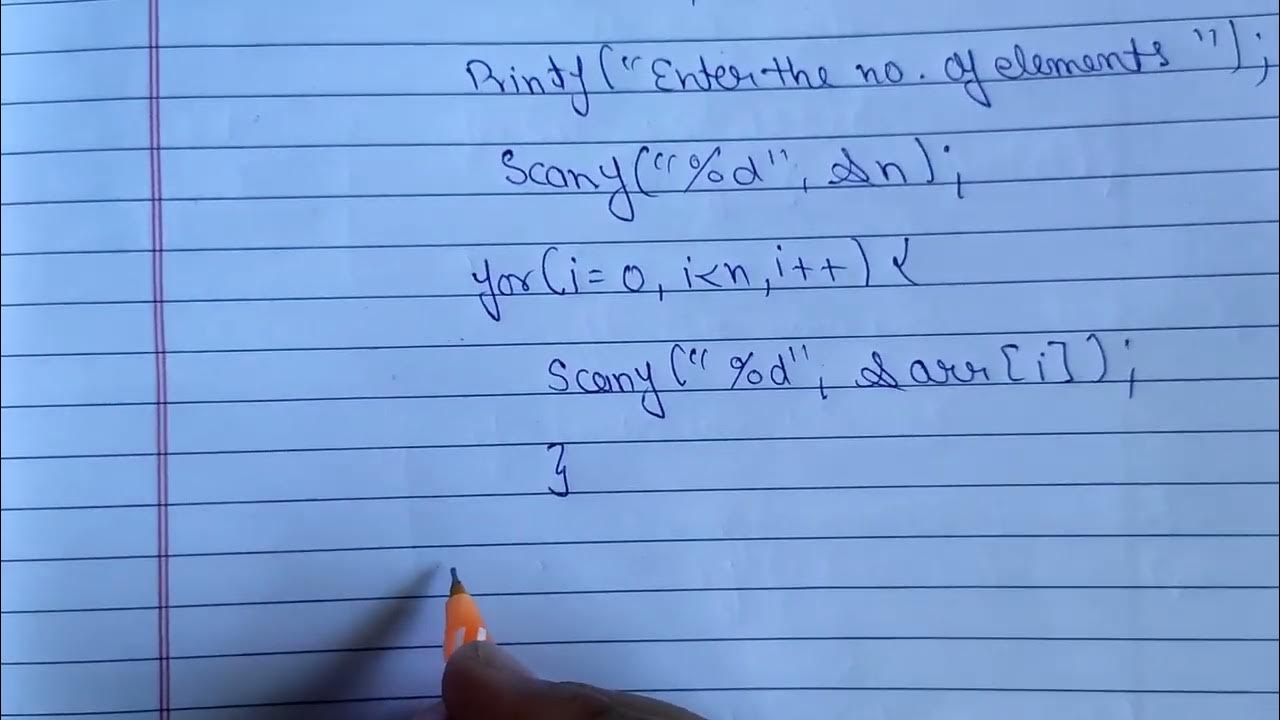 Printf("Enter the no. of elements");
Scanf("%d", &n);
for(i=0, i<n, i++) {
Scanf("%d", &arr[i]);
}